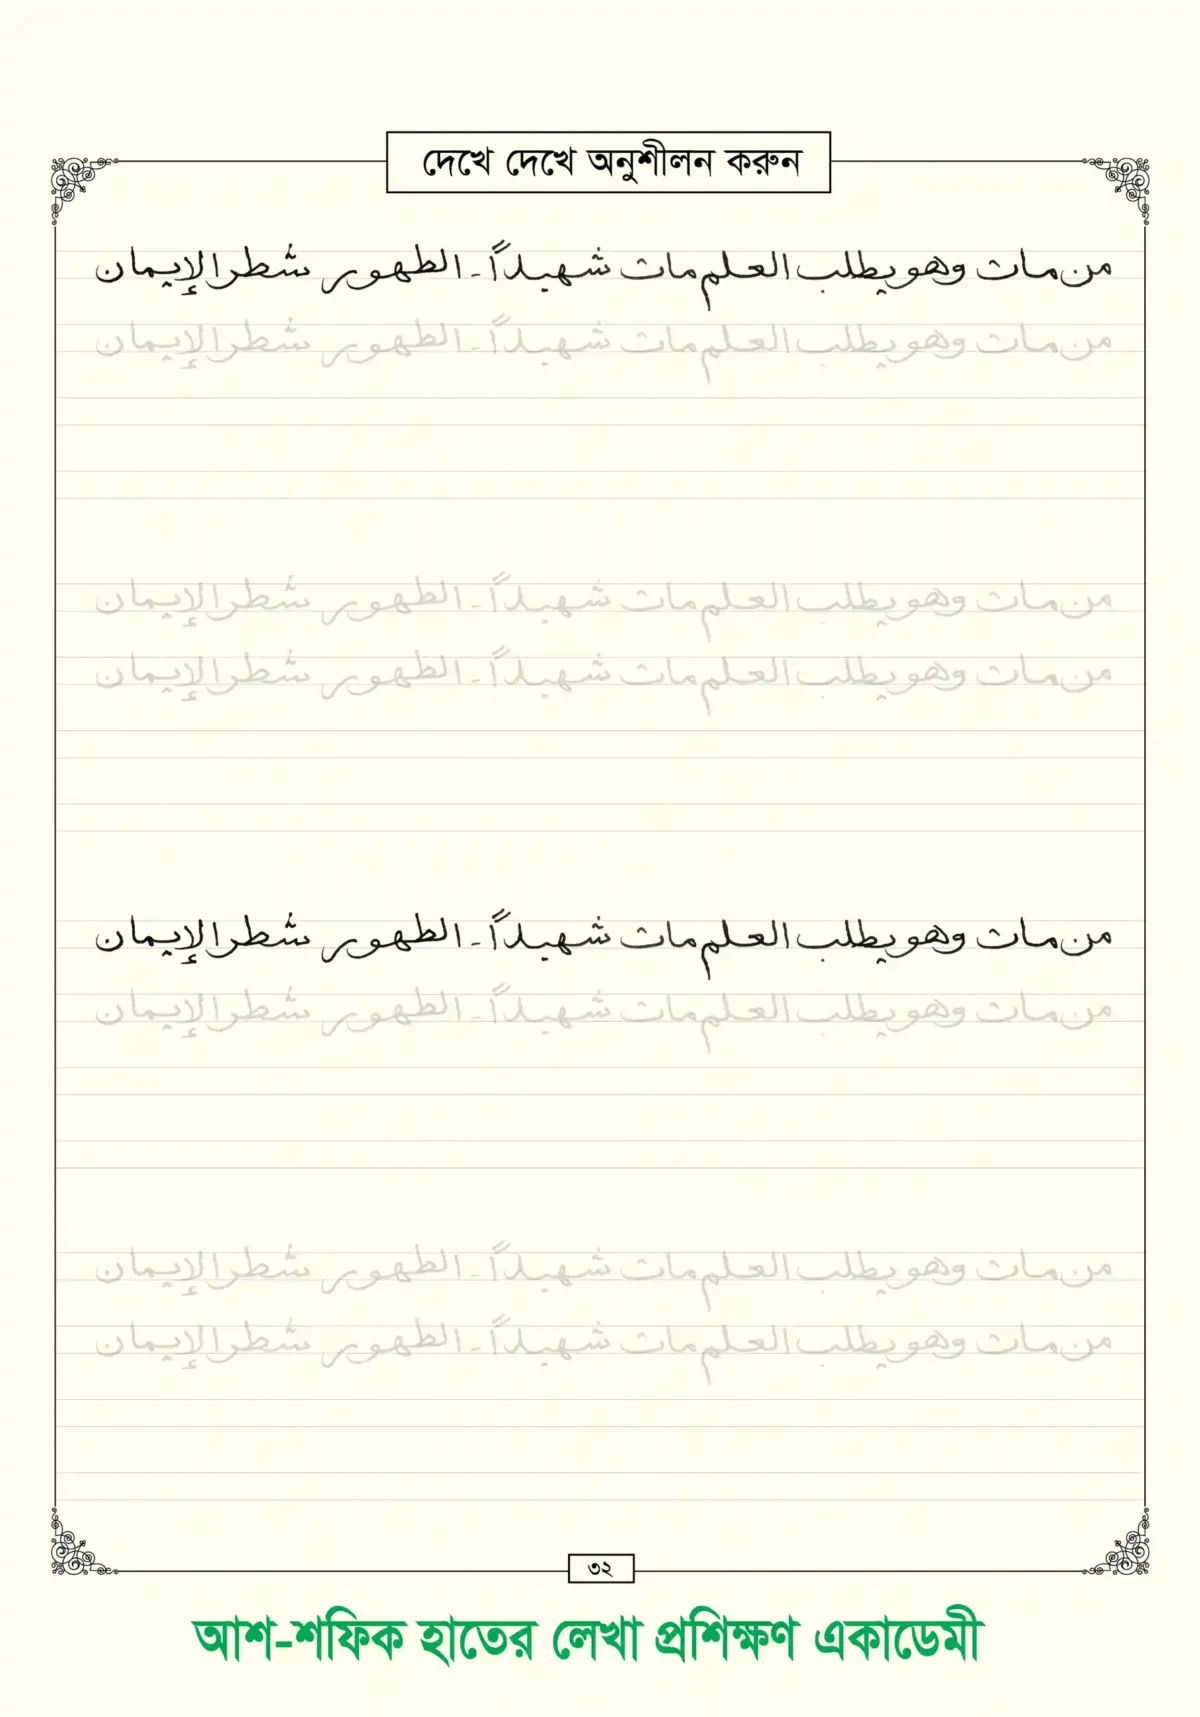 দেখে দেখে অনুশীলন করুন
من مات وهو يطلب العلم مات شهيداً ـ الطهور شطر الإيمان
من مات وهو يطلب العلم مات شهيداً ـ الطهور شطر الإيمان
من مات وهو يطلب العلم مات شهيداً ـ الطهور شطر الإيمان
من مات وهو يطلب العلم مات شهيداً ـ الطهور شطر الإيمان
من مات وهو يطلب العلم مات شهيداً ـ الطهور شطر الإيمان
من مات وهو يطلب العلم مات شهيداً ـ الطهور شطر الإيمان
من مات وهو يطلب العلم مات شهيداً ـ الطهور شطر الإيمان
من مات وهو يطلب العلم مات شهيداً ـ الطهور شطر الإيمان
৩২
আশ-শফিক হাতের লেখা প্রশিক্ষণ একাডেমী